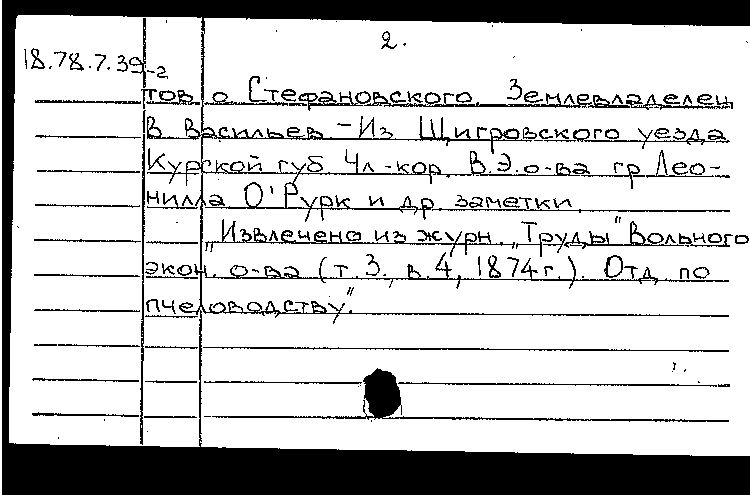 2.
18.78.7.39-г
тов о Стефановского. Землевладелец
В. Васильев – Из Щигровского уезда
Курской губ Чл.-кор. В.Э.о-ва гр Лео-
нилла О'Рурк и др. заметки.
„Извлечено из журн. „Труды" Вольного
экон. о-ва (т.3., в.4, 1874г.). Отд по
пчеловодству."